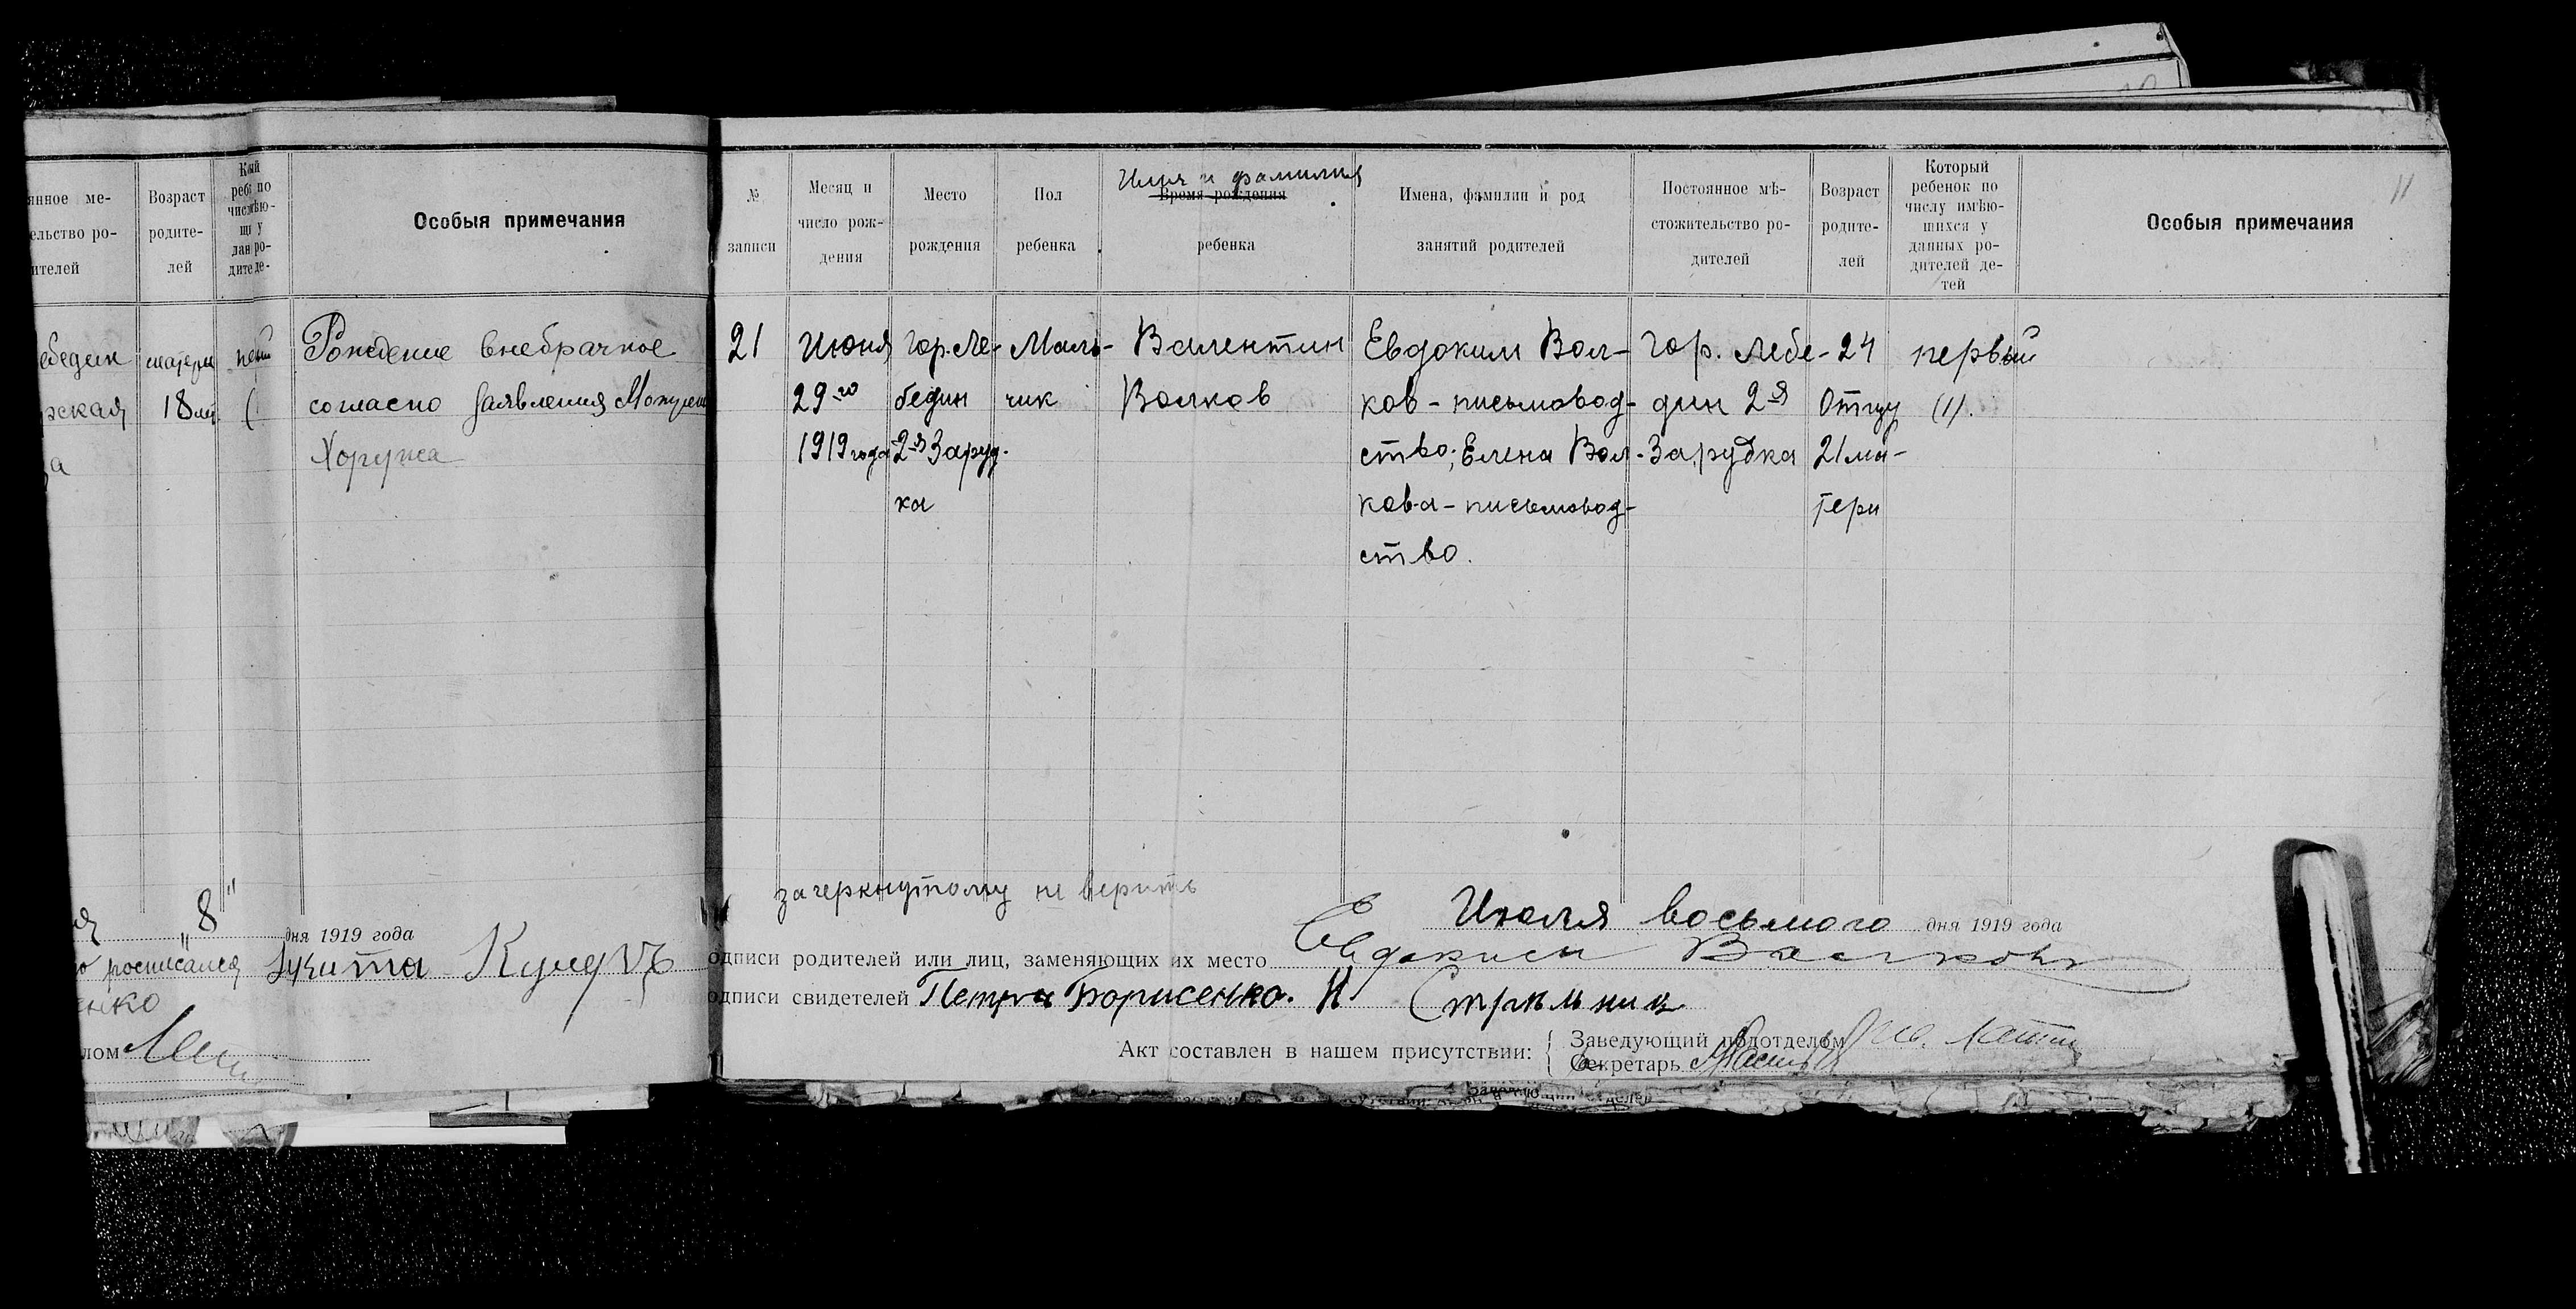 янное ме-
ельство ро-
ителей
Возраст
родите-
лей
Особыя примечания
ебедин
ская
матери
18 лет
Рождение внебрачное
согласно заявления
Хоружа
"8"
дня 1919 года
росписался
енко
лом
№
записи
Месяц и
число рож-
дения
Место
рождения
Пол
ребенка
Имя и фамилия
Время рождения
ребенка
Имена, фамилии и род
занятий родителей
Постоянное мѣ-
стожительство ро-
дителей
Возраст
родите-
лей
Который
ребенок по
числу имѣю-
шихся у
данных ро-
дителей де-
тей
Особыя примечания
11
21
Июня
29го
1919 года
Гор. Ле-
бедин
2-я Заруд-
ка
Маль-
чик
Валентин
Волков
Евдоким Вол-
ков - письмовод-
ство; Елена Вол-
кова - письмовод-
ство.
Гор. Лебе-
дин 2-я
Зарудка
24
Отцу
21 ма-
тери
первый
(1).
зачеркнутому не верить
Июля восьмого дня 1919 года
одписи родителей или лиц, заменяющих их место Евдоким Волков
одписи свидетелей Петро Борисенко. И
Акт составлен в нашем присутствии:
Заведующий подотделом
Секретарь